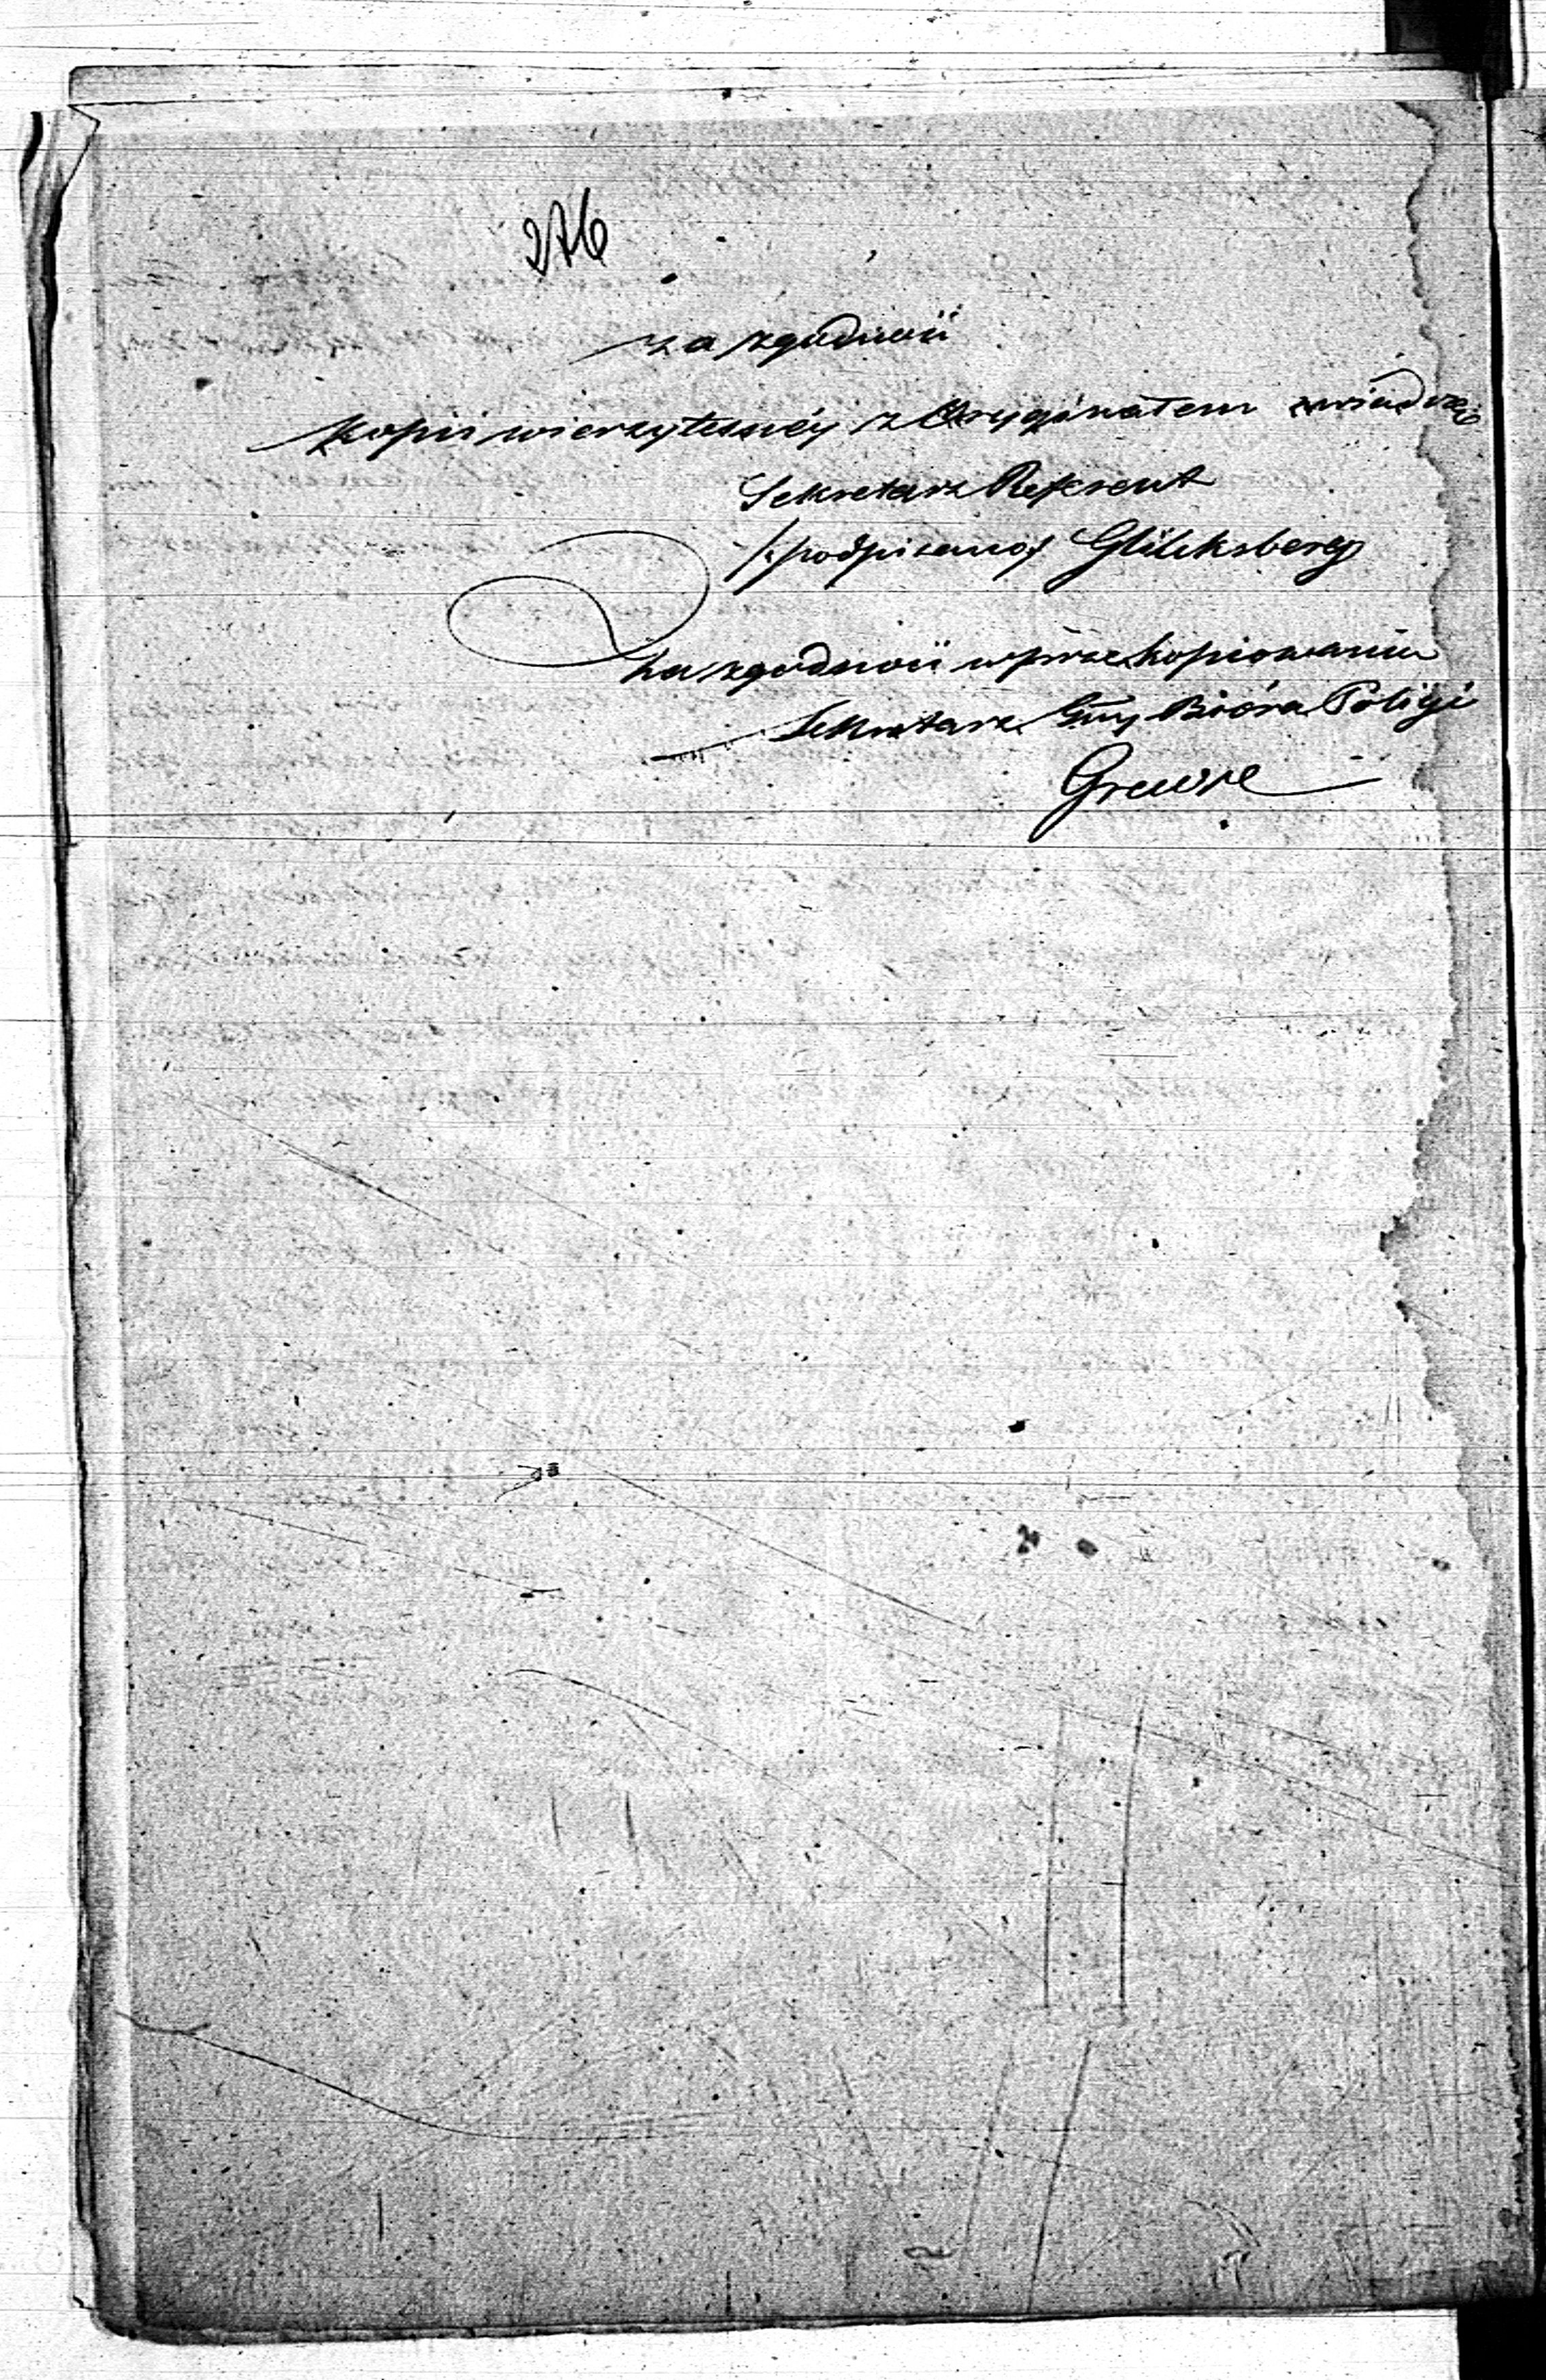 276
za zgodność
kopii wierzytelnéy z Oryginałem zaświadcza
Sekretarz Referent
/:podpisano:/ Glüksberg
Za zgodność w przekopiowaniu
Sekretarz Bióra Policyi